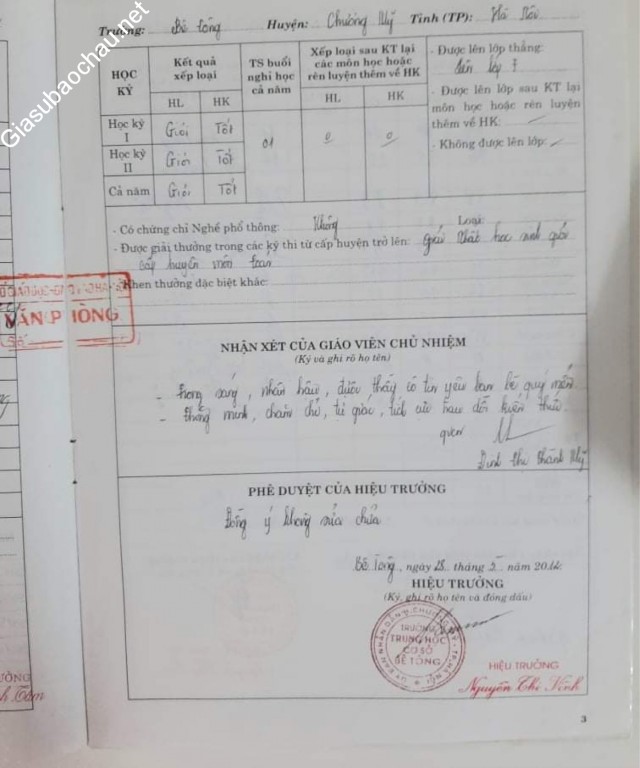 Giasubaochau.net
Trường: Bê Tông Huyện: Chương Mỹ Tỉnh (TP): Hà Nội
HỌC KỲ
Kết quả xếp loại
HL HK
TS buổi nghỉ học cả năm
Xếp loại sau KT lại các môn học hoặc rèn luyện thêm về HK
HL HK
- Được lên lớp thẳng:
Lên lớp 7
- Được lên lớp sau KT lại
môn học hoặc rèn luyện
thêm về HK:
- Không được lên lớp:
Học kỳ I Giỏi Tốt
01 0 0
Học kỳ II Giỏi Tốt
Cả năm Giỏi Tốt
- Có chứng chỉ Nghề phổ thông: Không Loại:
- Được giải thưởng trong các kỳ thi từ cấp huyện trở lên: Giải Nhất học sinh giỏi
cấp huyện môn toán
- Khen thưởng đặc biệt khác:
VĂN PHÒNG
NHẬN XÉT CỦA GIÁO VIÊN CHỦ NHIỆM
(Ký và ghi rõ họ tên)
- Trong sáng, nhân hậu, được thầy cô tin yêu bạn bè quý mến.
- Thông minh, chăm chỉ, tự giác, tích cực trau dồi kiến thức.
Đinh Thị Thanh Mỹ
PHÊ DUYỆT CỦA HIỆU TRƯỞNG
Đồng ý không sửa chữa
Bê Tông, ngày 28 tháng 5 năm
HIỆU TRƯỞNG
(Ký, ghi rõ họ tên và đóng dấu)
TRƯỜNG
TRUNG HỌC
CƠ SỞ
BÊ TÔNG
HIỆU TRƯỞNG
Nguyễn Thị Vinh
3